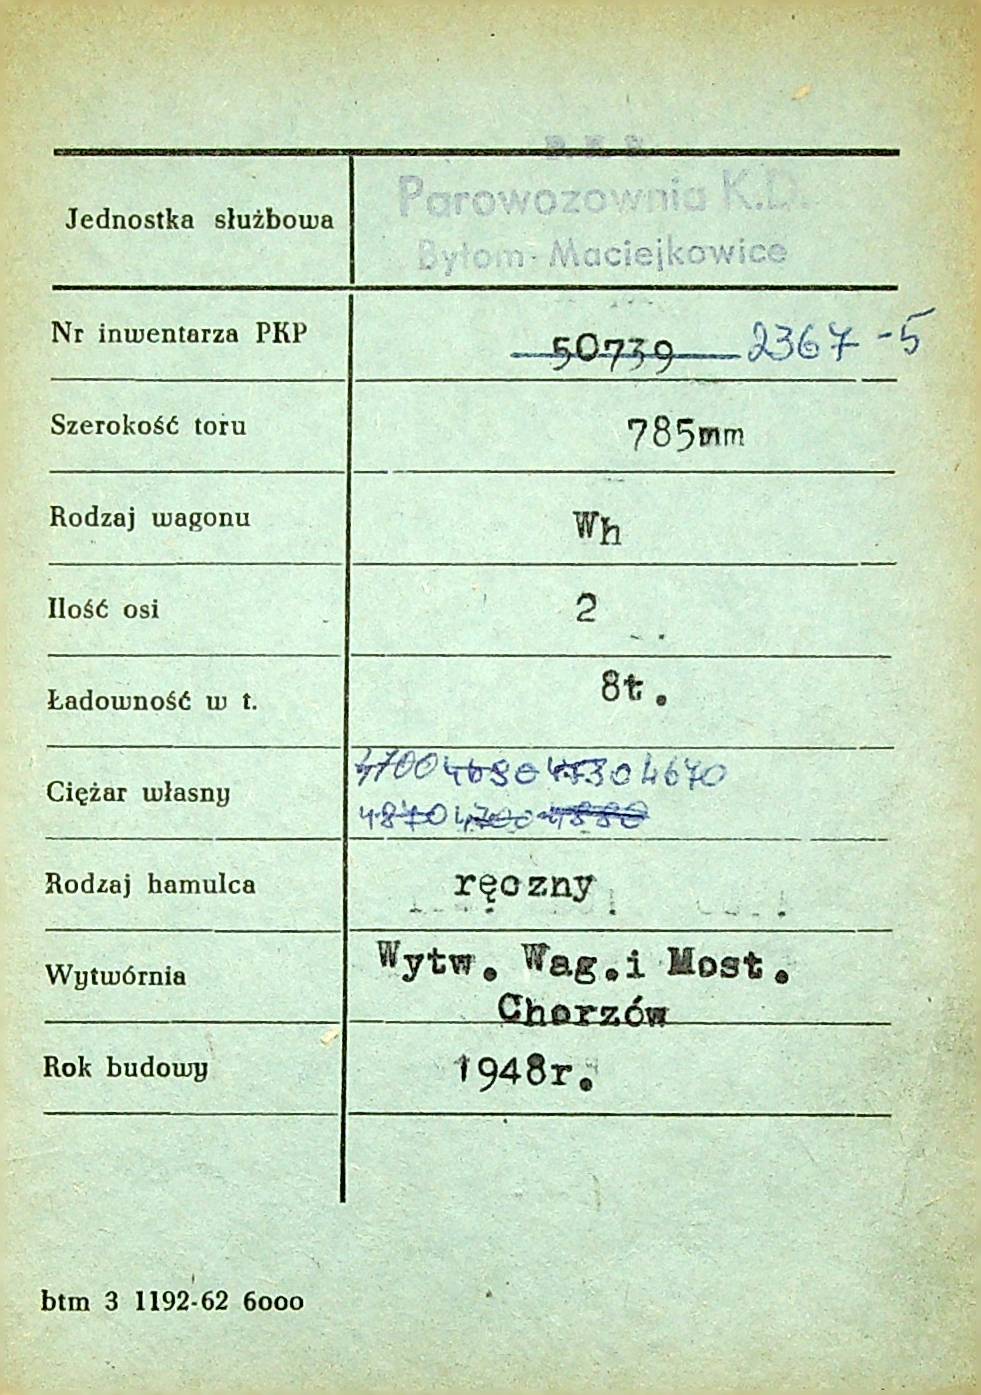 P. K. P.
Parowozownia K.D.
Bytom-Maciejkowice
Jednostka służbowa
Nr inwentarza PKP 50739 2367-5
Szerokość toru 785mm
Rodzaj wagonu Wh
Ilość osi 2
Ładowność w t. 8t.
4700 4680 4730 4670
Ciężar własny
4870 4700 4880
Rodzaj hamulca ręczny
Wytwórnia Wytw. Wag.i Most.
Chorzów
Rok budowy 1948r.
btm 3 1192-62 6000